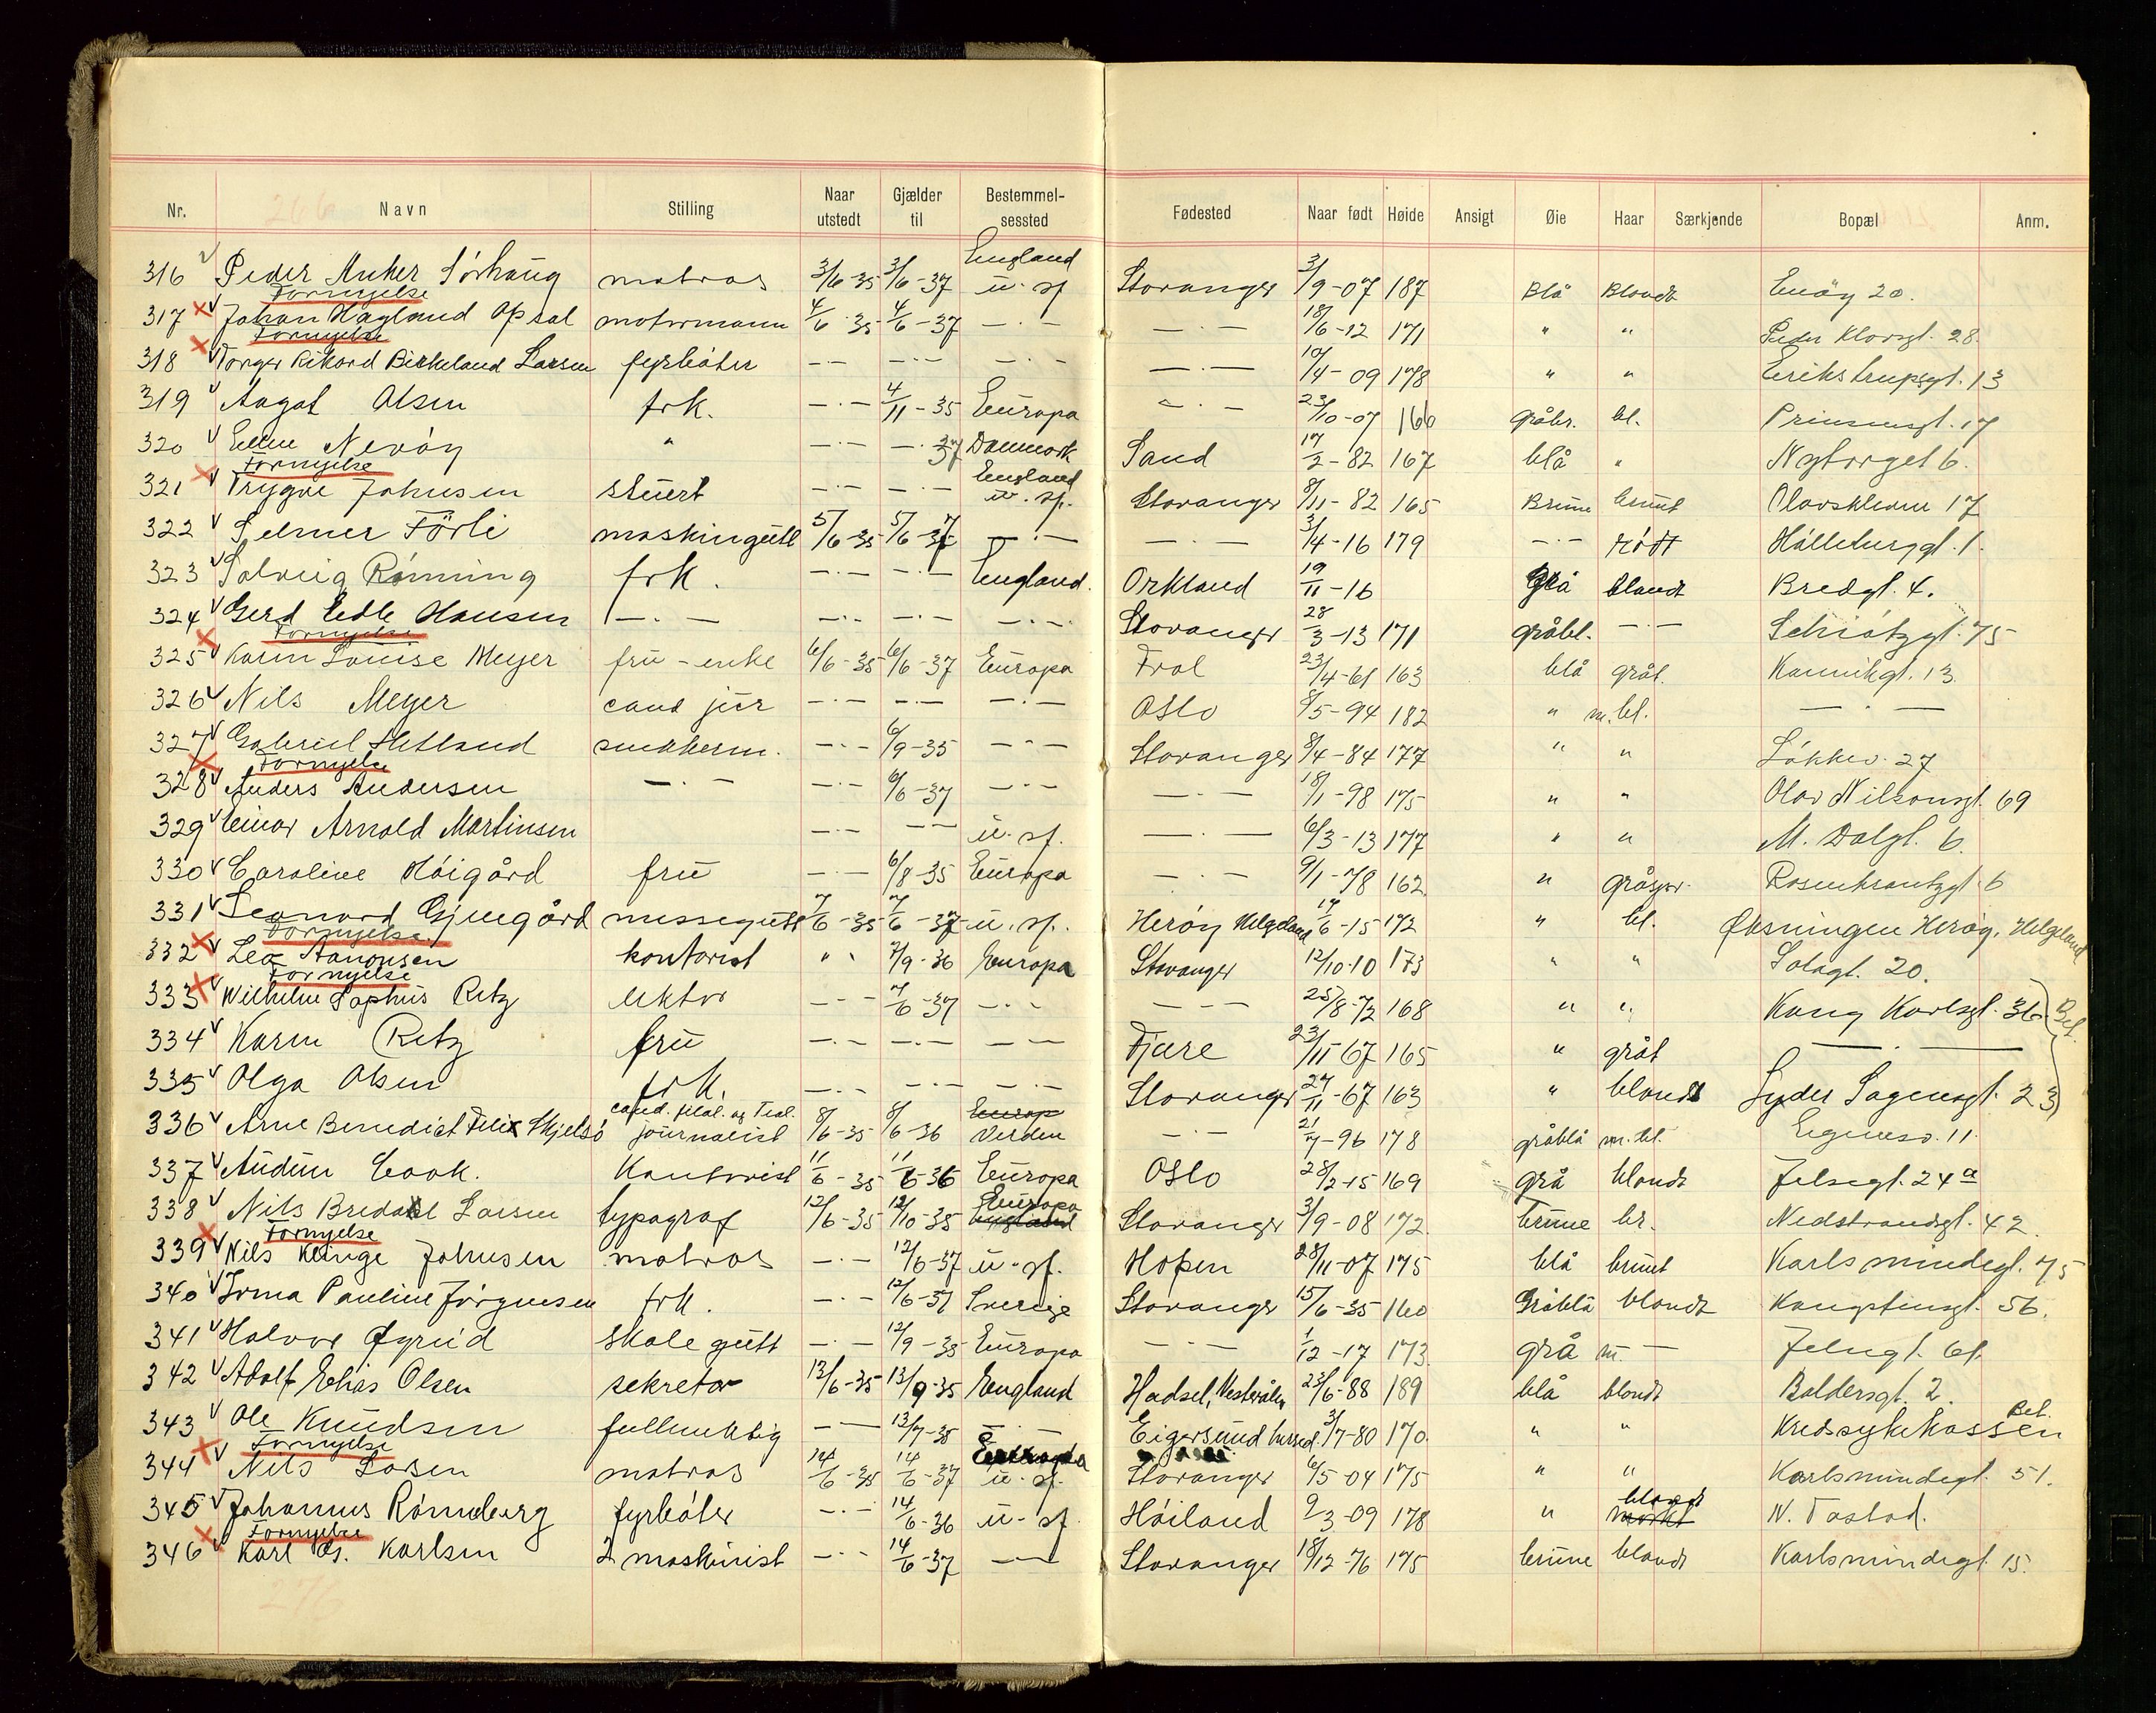 Nr. Navn Stilling Naar utstedt Gjælder til Bestemmelsessted Fødested Naar født Høide Ansigt Øie Haar Særkjende Bopæl Anm.
266
316 Peder Anker Sörhaug matros 3/6-35 3/6-37 England u. sf Stavanger 3/9-07 187 Blå Blondt Enöy 20.
Fornyelse
317 Johan Hagland Opsal motormann 4/6-35 4/6-37 —·— —·— 18/6-12 171 " " Peder Klowsgt. 28.
Fornyelse
318 Torger Rikard Birkeland Larsen fyrböter —·— —·— —·— —·— 10/4-09 178 " " Erikstrupsgt. 13
319 Aagot Olsen frk. —·— 4/11-35 Europa —·— 23/10-07 166 gråbr. bl. Prinsensgt. 17
320 Nevöy " —·— —·— 37 Danmark Sand 17/2-82 167 blå " Nytorget 6.
Fornyelse
321 Trygve Johnsen stuert —·— —·— England u. sf. Stavanger 8/11-82 165 Brune brunt Olavskleven 17
322 Selmer Förli maskingutt 5/6-35 5/6-37 —·— —·— 3/4-16 179 —·— rödt 1.
323 Solveig Rönning frk. —·— —·— England. Orkland 19/11-16 Grå blondt Bredgt. 4.
324 Gerd Edle Hansen —·— —·— —·— —·— Stavanger 28/3-13 171 gråbl. —·— Schiötzgt. 75
Fornyelse
325 Karen Louise Meyer fru-enke 6/6-35 6/6-37 Europa Frol 23/4-61 163 blå gråt. Kannikgt. 13.
326 Nils Meyer cand jur —·— —·— —·— Oslo 8/5-94 182 " m.bl. —·—
327 Gabriel Hetland snekkerm. —·— 6/9-35 —·— Stavanger 8/4-84 177 " " Lökkev. 27
Fornyelse
328 Anders Andersen —·— —·— 6/6-37 —·— —·— 18/1-98 175 " " Olav Nilsonsgt. 69
329 Einar Arnold Martinsen —·— —·— u. sf. —·— 6/3-13 177 " " M. Dalgt. 6.
330 Caroline Höigård fru —·— 6/8-35 Europa —·— 9/1-78 162 " gråspr. Rosenkrantzgt. 6
331 Leonard Gjengård messegutt 7/6-35 7/6-37 u. sf. Heröy Helgeland 17/6-15 172 " bl. Øksningen Heröy, Helgeland
Fornyelse
332 Lea Aanonsen kontorist " " 7/9-36 Europa Stavanger 12/10-10 173 " " Solagt. 20.
Fornyelse
333 Wilhelm Sophus Retz lektor —·— 7/6-37 —·— —·— 25/8-72 168 " " Kong Karlsgt. 36 Bet.
334 Karen Retz fru —·— —·— —·— Fjære 23/11-67 165 " gråt —·—
335 Olga Olsen frk. —·— —·— —·— Stavanger 27/11-67 163 " blondt Lyder Sagensgt. 23
336 Arne Benedict Felix Skjelsö cand. filol. og Teol. journalist 8/6-35 8/6-36 Europ Verden —·— 21/7-96 178 gråblå m.bl. Eiganesv. 11.
337 Audun Cook. Kontorist 11/6-35 11/6-36 Europa Oslo 28/2-15 169 grå blondt Jelsegt. 24 a
338 Nils Bredahl Larsen typograf 12/6-35 12/10-35 Europa England Stavanger 3/9-08 172. brune br. Nedstrandsgt. 42.
Fornyelse
339 Nils Klinge Johnsen matros —·— 12/6-37 u. sf. Hopen 28/11-07 175 blå brunt Karlsmindegt. 75
340 Irma Pauline Jörgensen frk. —·— 12/6-37 Sverige Stavanger 15/6-35 160 Gråblå blondt Kongstensgt. 56.
341 Halvor Øgreid skolegutt —·— 12/9-35 Europa —·— 1/12-17 173 grå m. — Jelsegt. 61.
342 Adolf Elias Olsen sekretær 13/6-35 13/9-35 England Hadsel, Vesterålen 23/6-88 189 blå blondt Baldersgt. 2.
343 Ole Knudsen fullmektig —·— 13/9-35 —·— Eigersund herred. 3/7-80 170. " " Kredssykekassen Bet.
Fornyelse
344 Nils Larsen matros 14/6-35 14/6-37 u. sf. Stavanger 6/5-04 175 " " Karlsmindegt. 51.
345 Johannes Rönneberg fyrböter —·— 14/6-36 u. sf. Höiland 9/3-09 178 " blondt mörkt N. Tastad.
Fornyelse
346 Karl Gs. Karlsen 2 maskinist —·— 14/6-37 —·— Stavanger 18/12-76 175 brune blondt Karlsmindegt. 15.
276